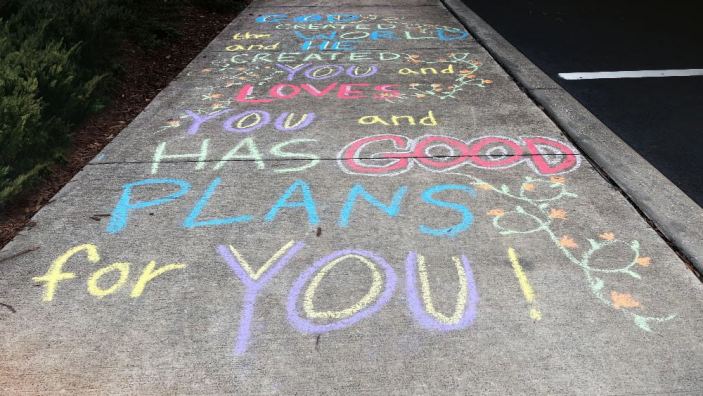 GOD
CREATED
the WORLD
and HE
CREATED
YOU and
LOVES
YOU and
HAS GOOD
PLANS
for YOU!